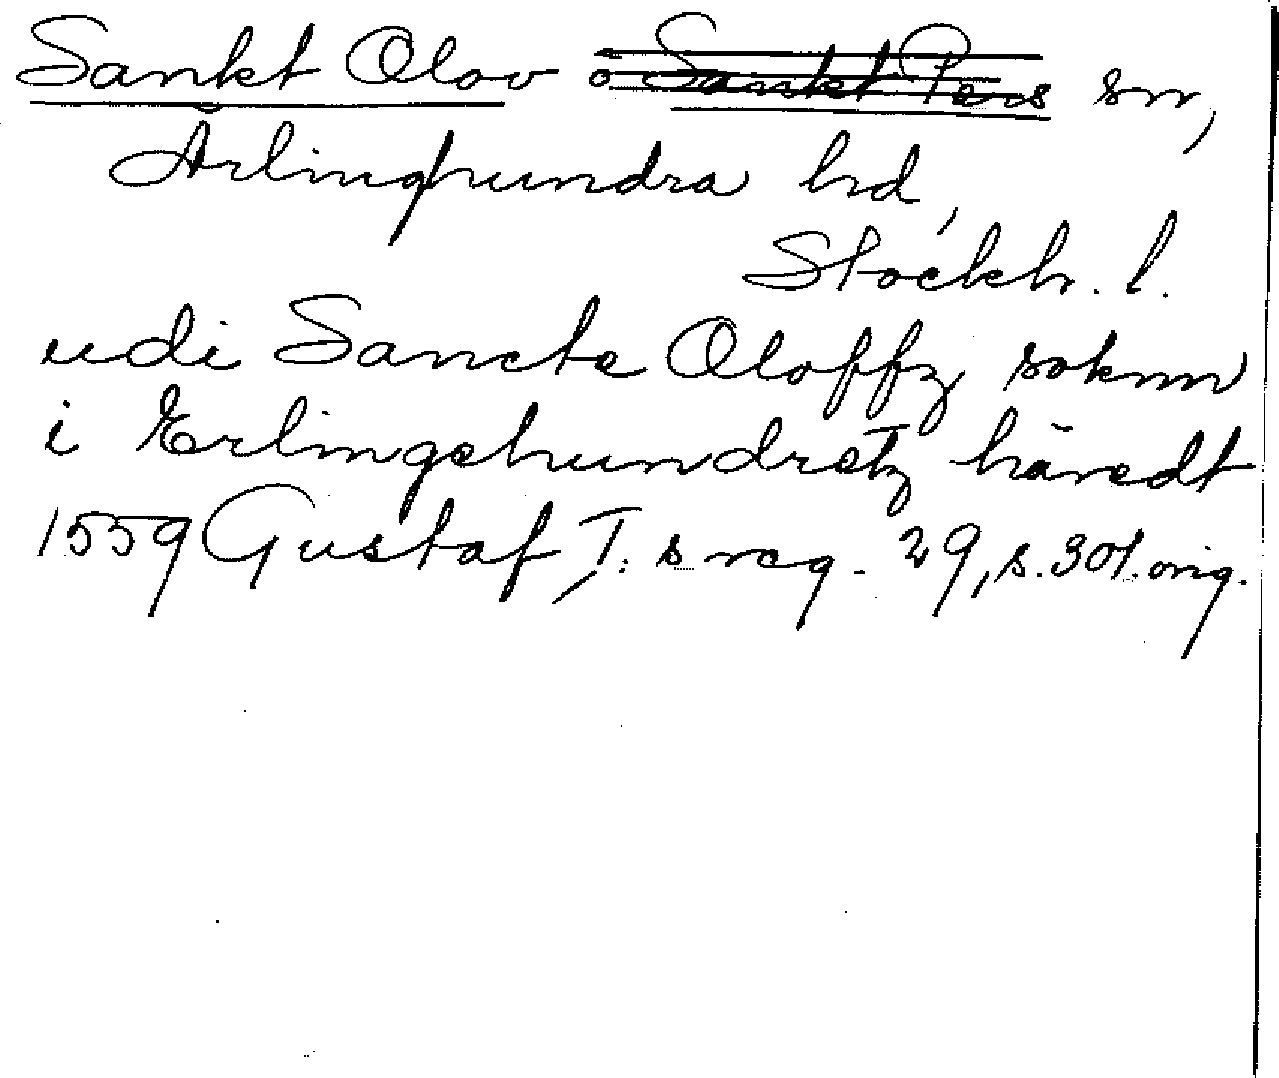 Sankt Olov o Sankt Pers snr,
Ärlinghundra hd,
Stockh. l.
udi Sancte Oloffz soknn
i Erlingehundretz häredt
1559 Gustaf I:s reg. 29, s. 301. orig.